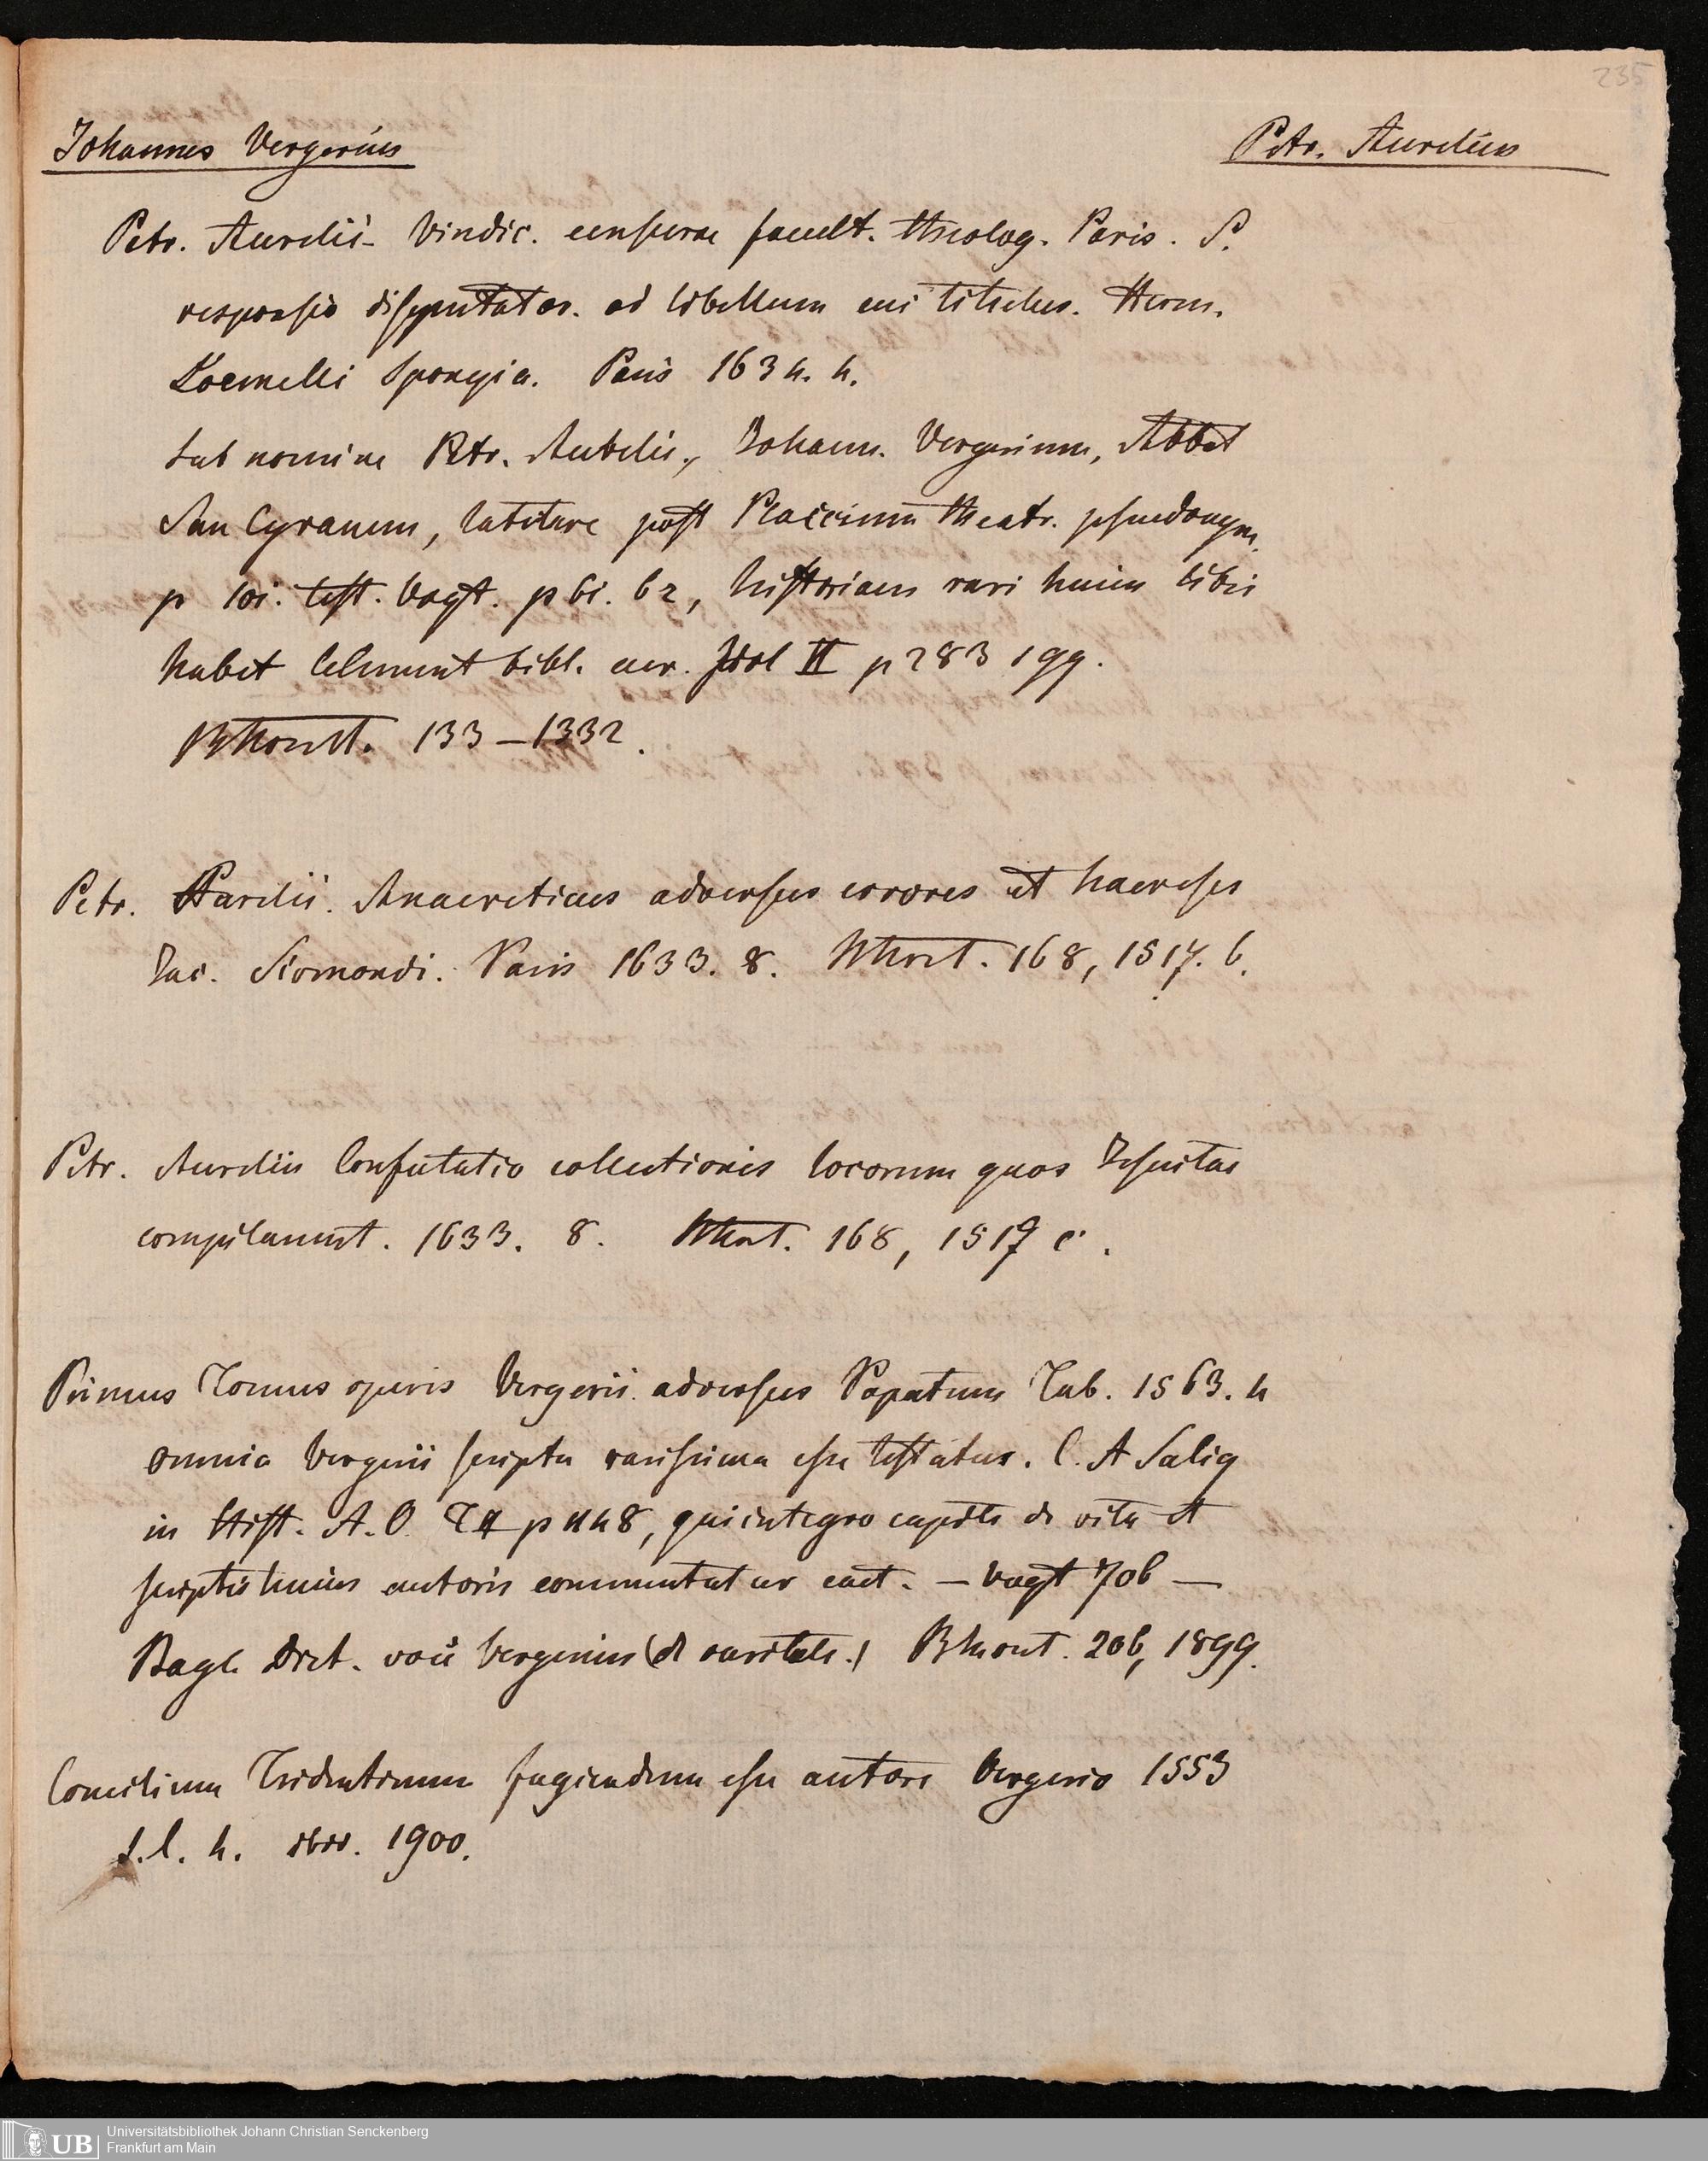 235
Johannes Vergerius
Petr. Aurelius
Petr. Aurelii Vindic. censurae facult. theolog. Paris. S.
responsio disputator. ad libellum cui titulus. Herm.
Loemelli Spongia. Paris 1634. 4.
sub nomine Petr. Aurelii, Johann. Vergerium, Abbat
San Cyranum, latitare post Placcium theatr. pseudonym.
p 101. test. Vogt. p 61. 62, historiam rari huius libri
habet Clement bibl. cur. II p 283 sqq.
Bhonet. 133–1332.
Petr. Aurelii. Anaereticus adversus errores et haereses
Jac. Sirmondi. Paris 1633. 8. 168, 1517. b.
Petr. Aurelii Confutatio collectionis locorum quos Jesuitae
compilarunt. 1633. 8. 168, 1517 c.
Primus Tomus operis Vergerii adversus Papatum Tub. 1563. 4
omnia Vergerii scripta rarissima esse testatus. C. A Salig
in Hist. A. O. T II p 1148, qui integro capite de vita et
scriptis huius autoris commentatur eact. – Vogt 706 –
Bayle Dict. voce Vergerius (de raritate.) Bhont. 206, 1899.
Concilium Tridentinum fugiendum esse autore Vergerio 1553
s.l. 4. ibid. 1900.
UB
Universitätsbibliothek Johann Christian Senckenberg
Frankfurt am Main